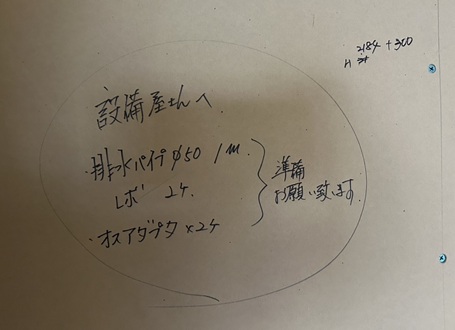 2184+300
設備屋さんへ
・排水パイプφ50 1m.
レボ 2ケ.
・オスアダプタ×2ケ
準備
お願い致します